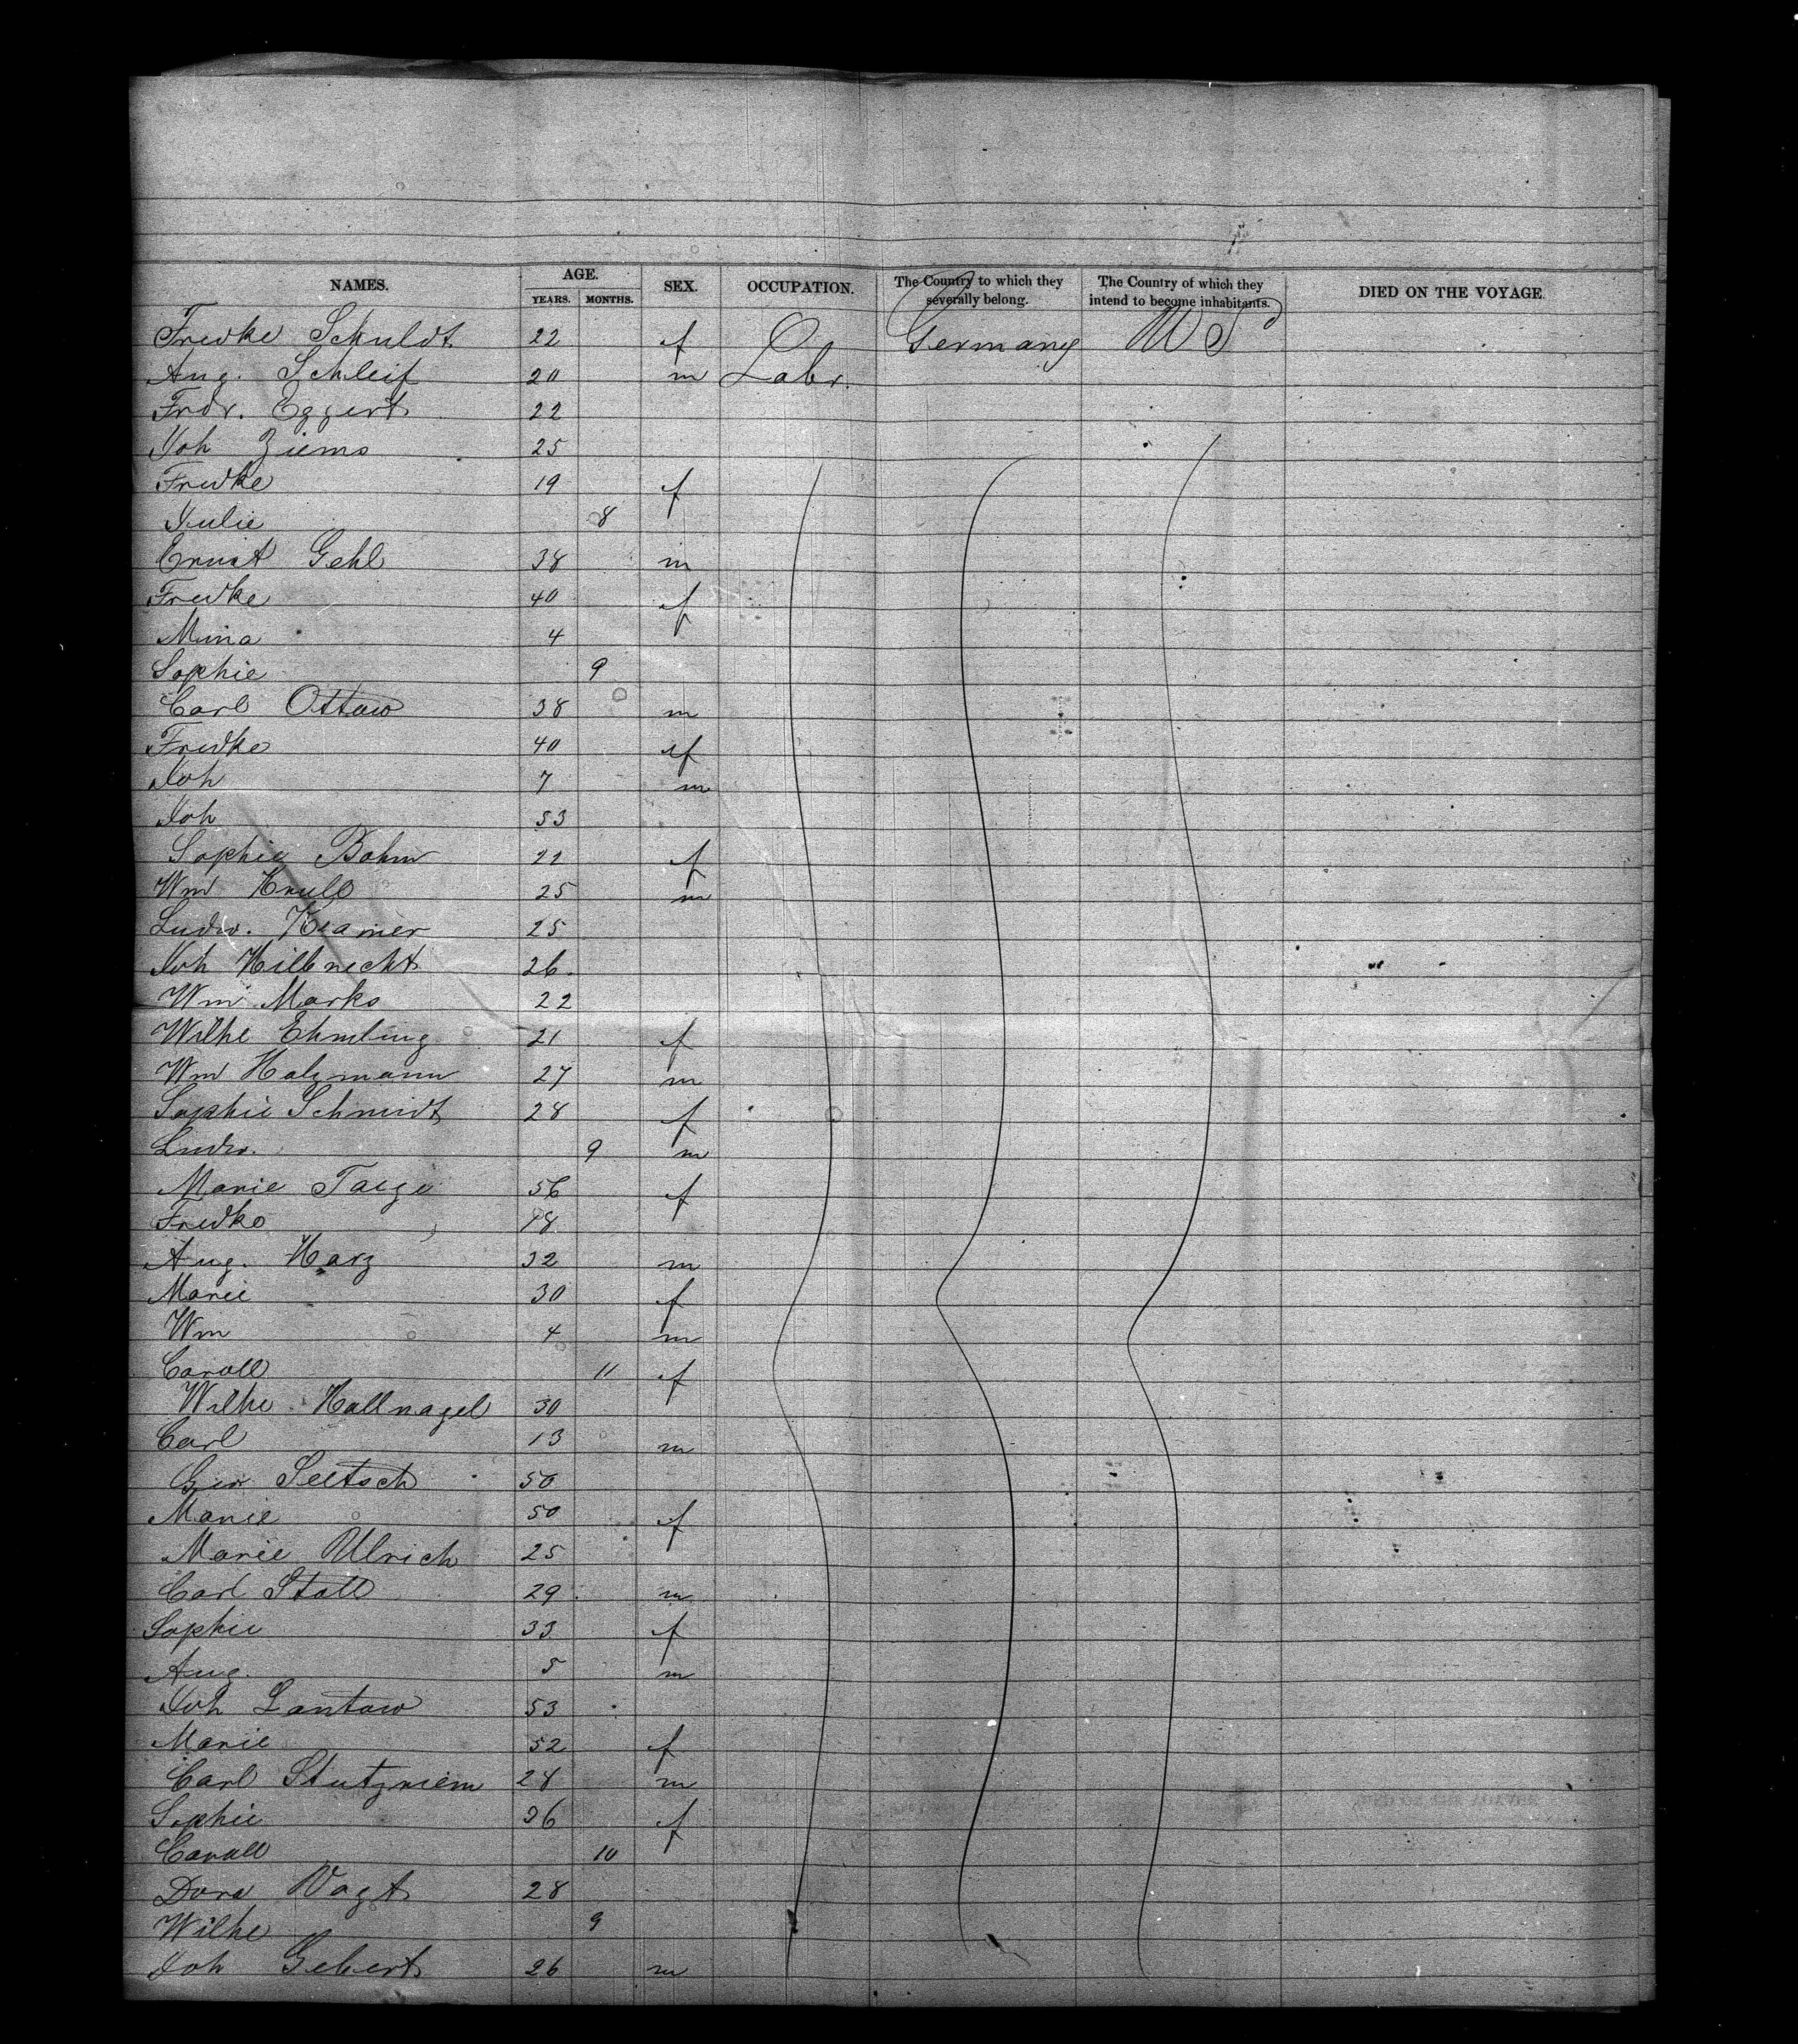 NAMES. AGE. YEARS. MONTHS. SEX. OCCUPATION. The Country to which they severally belong. The Country of which they intend to become inhabitants. DIED ON THE VOYAGE
Fredke Schuldt 22 f O Germany US
Aug. Schleif 20 m Labr.
Frdr. Eggert 22
Joh Ziems 25
Fredke 19 f
Julie 8
Ernst Gehl 38 m
Fredke 40 f
Mina 4
Sophie 9
Carl Ottow 38 m
Fredke 40 f
Joh 7 m
Joh 53
Sophie Bohm 22 f
Wm Krull 25 m
Ludw. Kramer 25
Joh Hillnecht 26
Wm Marks 22
Wilhe Ehmling 21 f
Wm Holzmann 27 m
Sophie Schmidt 28 f
Ludw. 9 m
Marie Taege 56 f
Fredke 18
Aug. Harz 32 m
Marie 30 f
Wm 4 m
Caroll 11 f
Wilhe Hallnagel 30
Carl 13 m
Seetsch 50
Marie 50 f
Marie Ulrich 25
Carl Stoll 29 m
Sophie 33 f
Aug. 5 m
Joh Lantow 53
Marie 52 f
Carl Stutzriem 28 m
Sophie 26 f
Caroll 10
Dora Vogt 28
Wilhe 9
Joh Gebert 26 m